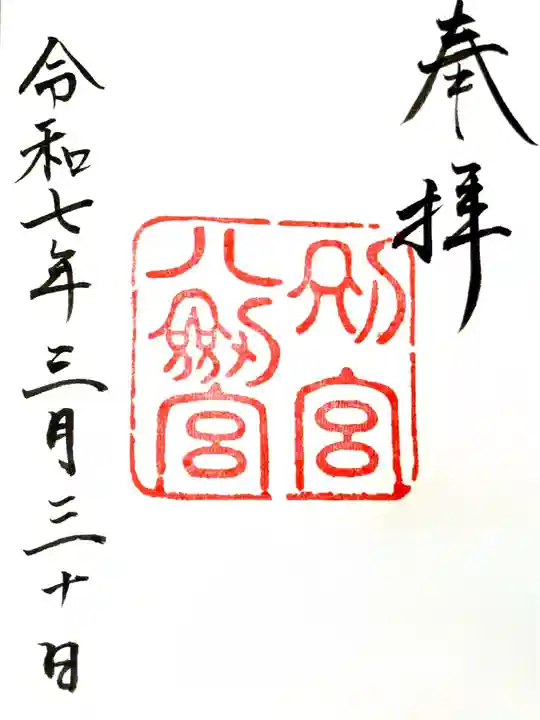 奉拝
別宮
八剣宮
令和七年三月三十日